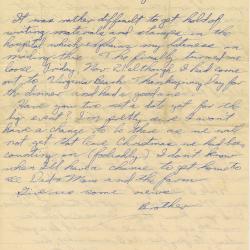 It was rather difficult to get hold of
writing materials and stamps, in the
hospital which explains my lateness in
mailing this. I too finally turned me
loose Friday, Nov. altho I had come
out to Virginia Beach Thanksgiving Day for
the dinner and had a good
Have you two set a date yet for the
big event? I'm pretty sure I won't
have a chance to be there as we will
not get that Christmas we had been
counting on (probably). I don't know
when I'll have a chance to get home to
see Dad & Mom and the
Give us some news.
Brother